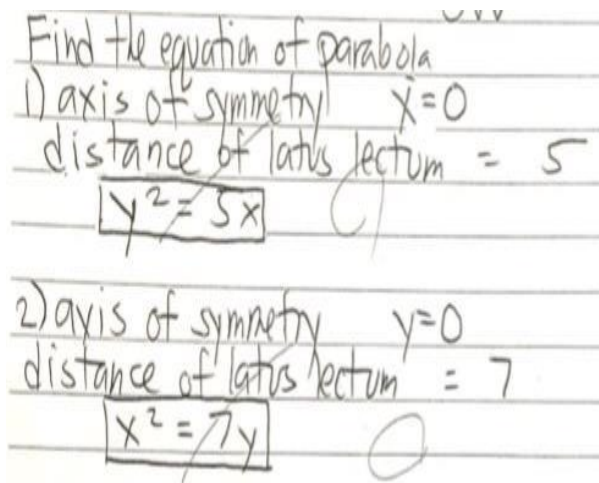 Find the equation of parabola
1) axis of symmetry x=0
distance of latus lectum = 5
y² = 5x
2) axis of symmetry y=0
distance of latus lectum = 7
x² = 7y